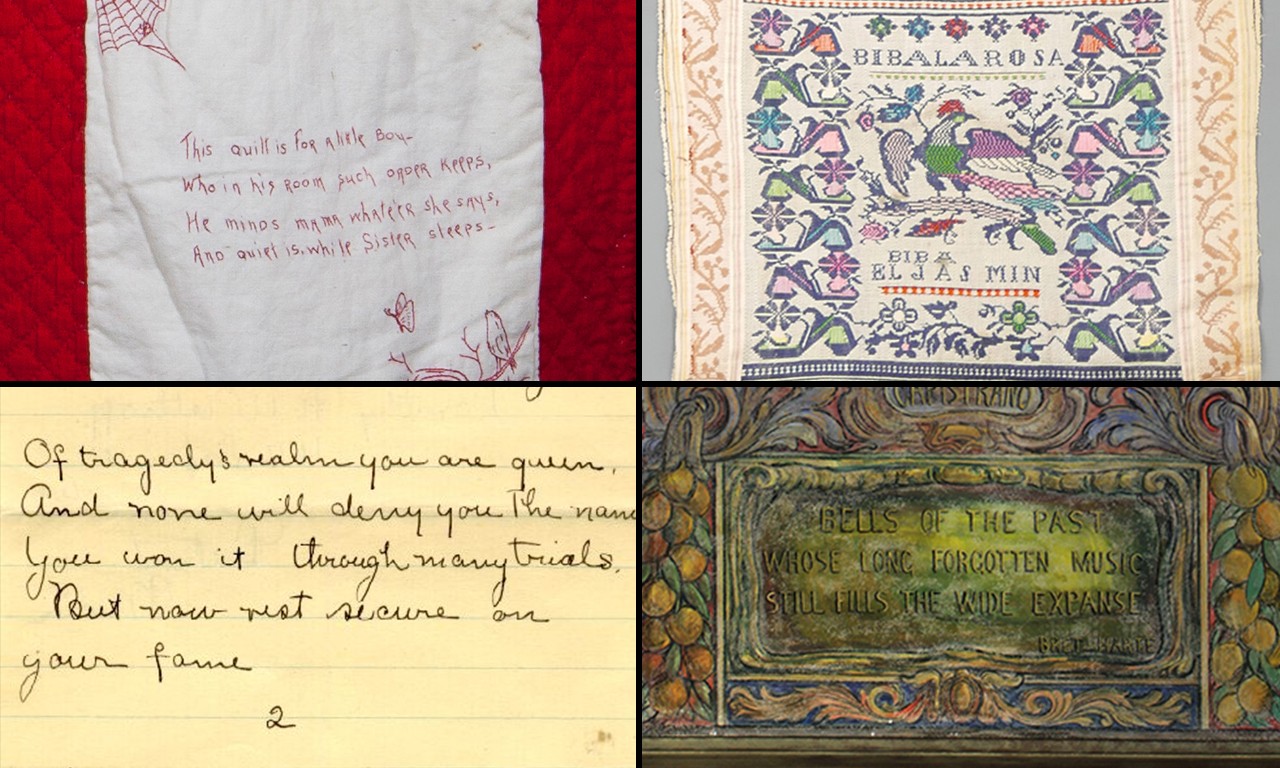 This quilt is for a little Boy-
Who in his room such order keeps,
He minds mama whate'er she says,
And quiet is, while Sister sleeps-
BIBALAROSA
BIBA
ELJASMIN
Of tragedy's realm you are queen,
And none will deny you the name
You won it through many trials.
But now rest secure on
your fame
2
BELLS OF THE PAST
WHOSE LONG FORGOTTEN MUSIC
STILL FILLS THE WIDE EXPANSE
BRET HARTE